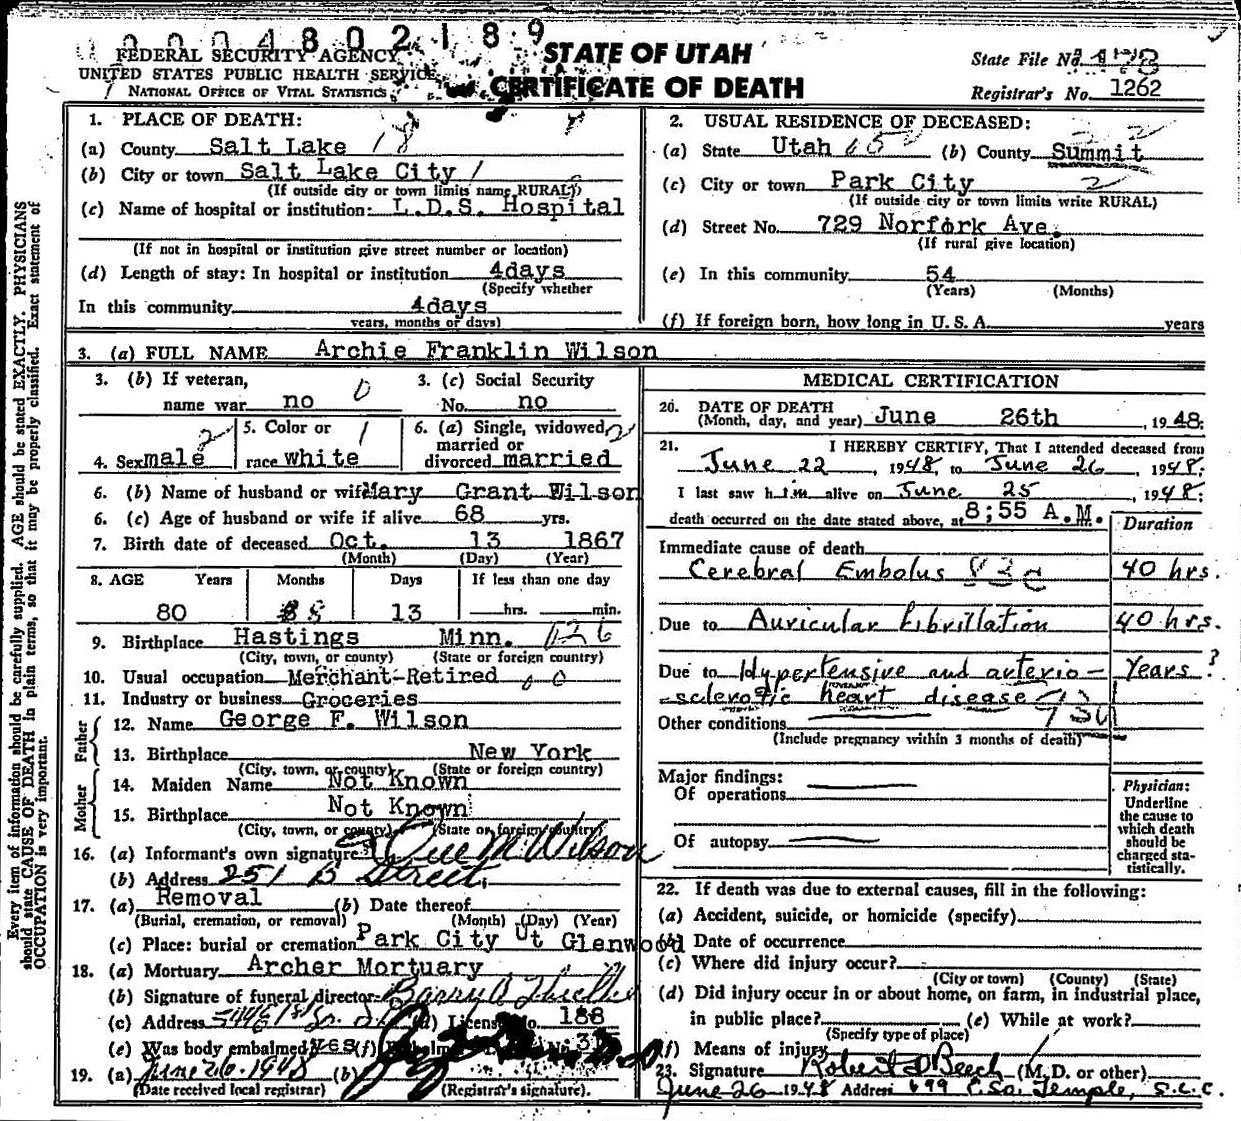 0004802189
FEDERAL SECURITY AGENCY
UNITED STATES PUBLIC HEALTH SERVICE
NATIONAL OFFICE OF VITAL STATISTICS
STATE OF UTAH
CERTIFICATE OF DEATH
State File No.
Registrar's No. 1262
Every item of information should be carefully supplied. AGE should be stated EXACTLY. PHYSICIANS
should state CAUSE OF DEATH in plain terms, so that it may be properly classified. Exact statement of
OCCUPATION is very important.
1. PLACE OF DEATH:
(a) County Salt Lake 18
(b) City or town Salt Lake City 1
(If outside city or town limits name RURAL)
(c) Name of hospital or institution: L.D.S. Hospital
(If not in hospital or institution give street number or location)
(d) Length of stay: In hospital or institution 4days
(Specify whether
In this community 4days
years, months or days)
2. USUAL RESIDENCE OF DECEASED:
(a) State Utah 65 (b) County Summit 22
(c) City or town Park City 2
(If outside city or town limits write RURAL)
(d) Street No. 729 Norfork Ave.
(If rural give location)
(e) In this community 54
(Years) (Months)
(f) If foreign born, how long in U. S. A. years
3. (a) FULL NAME Archie Franklin Wilson
3. (b) If veteran, 0 3. (c) Social Security
name war no No. no
4. Sex male 2 5. Color or 1 race white 6. (a) Single, widowed, 2 married or divorced married
6. (b) Name of husband or wife Mary Grant Wilson
6. (c) Age of husband or wife if alive 68 yrs.
7. Birth date of deceased Oct. 13 1867
(Month) (Day) (Year)
8. AGE Years Months Days If less than one day
80 8 13 hrs. min.
9. Birthplace Hastings Minn. 126
(City, town, or county) (State or foreign country)
10. Usual occupation Merchant-Retired
11. Industry or business Groceries
Father
12. Name George F. Wilson
13. Birthplace New York
(City, town, or county) (State or foreign country)
Mother
14. Maiden Name Not Known
15. Birthplace Not Known
(City, town, or county) (State or foreign country)
16. (a) Informant's own signature M Wilson
(b) Address 251 B Street
17. (a) Removal (b) Date thereof
(Burial, cremation, or removal) (Month) (Day) (Year)
(c) Place: burial or cremation Park City Ut Glenwood
18. (a) Mortuary Archer Mortuary
(b) Signature of funeral director
(c) Address (d) License No. 188
(e) Was body embalmed yes (f) No.
19. (a) June 26-1948 (b)
(Date received local registrar) (Registrar's signature).
MEDICAL CERTIFICATION
20. DATE OF DEATH
(Month, day, and year) June 26th, 1948.
21. I HEREBY CERTIFY, That I attended deceased from
June 22, 1948 to June 26, 1948.
I last saw him alive on June 25, 1948.
death occurred on the date stated above, at 8;55 A.M.
Duration
Immediate cause of death
Cerebral Embolus 40 hrs.
Due to Auricular Fibrillation 40 hrs.
Due to Hypertensive and arterio- Years?
sclerotic heart disease
Other conditions
(Include pregnancy within 3 months of death)
Major findings:
Of operations
Of autopsy
Physician:
Underline
the cause to
which death
should be
charged sta-
tistically.
22. If death was due to external causes, fill in the following:
(a) Accident, suicide, or homicide (specify)
(b) Date of occurrence
(c) Where did injury occur?
(City or town) (County) (State)
(d) Did injury occur in or about home, on farm, in industrial place,
in public place? (e) While at work?
(Specify type of place)
(f) Means of injury
23. Signature Robert D Beech (M. D. or other)
June 26 1948 Address 699 E. So. Temple, S.L.C.